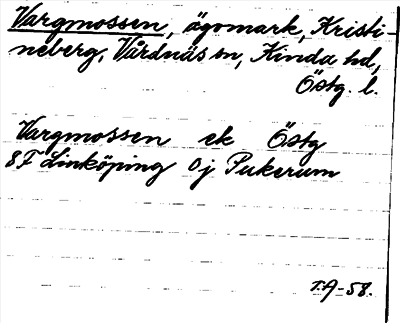 Vargmossen, ägomark, Kristi-
neberg, Vårdnäs sn, Kinda hd,
Östg. l.
Vargmossen ek Östg
8F Linköping 0j Pukerum
T.A-58.